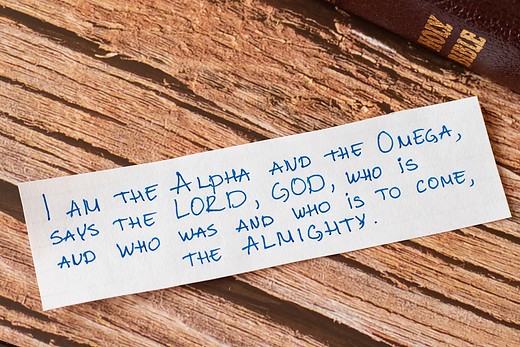 HOLY
BIBLE
I AM THE ALPHA AND THE OMEGA,
SAYS THE LORD, GOD, WHO IS
AND WHO WAS AND WHO IS TO COME,
THE ALMIGHTY.